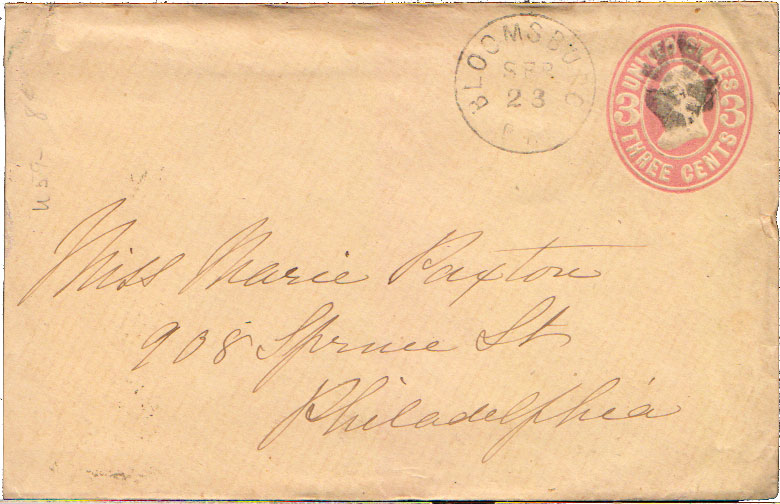 BLOOMSBURG
SEP
23
PA
UNITED STATES
3 3
THREE CENTS
Miss Marie Paxton
908 Spruce St
Philadelphia